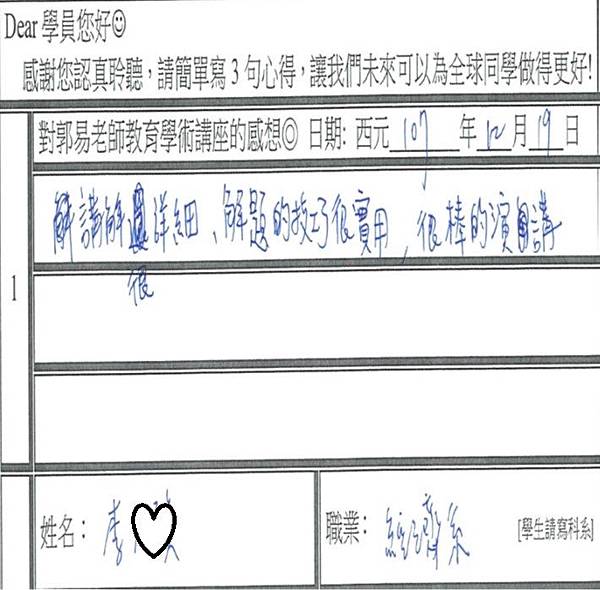 Dear 學員您好☺
感謝您認真聆聽，請簡單寫 3 句心得，讓我們未來可以為全球同學做得更好!
對郭易老師教育學術講座的感想◎ 日期: 西元 107 年 12 月 19 日
1
講解很詳細、解題的技巧很實用，很棒的演講
姓名： 李
職業： 經濟系 [學生請寫科系]